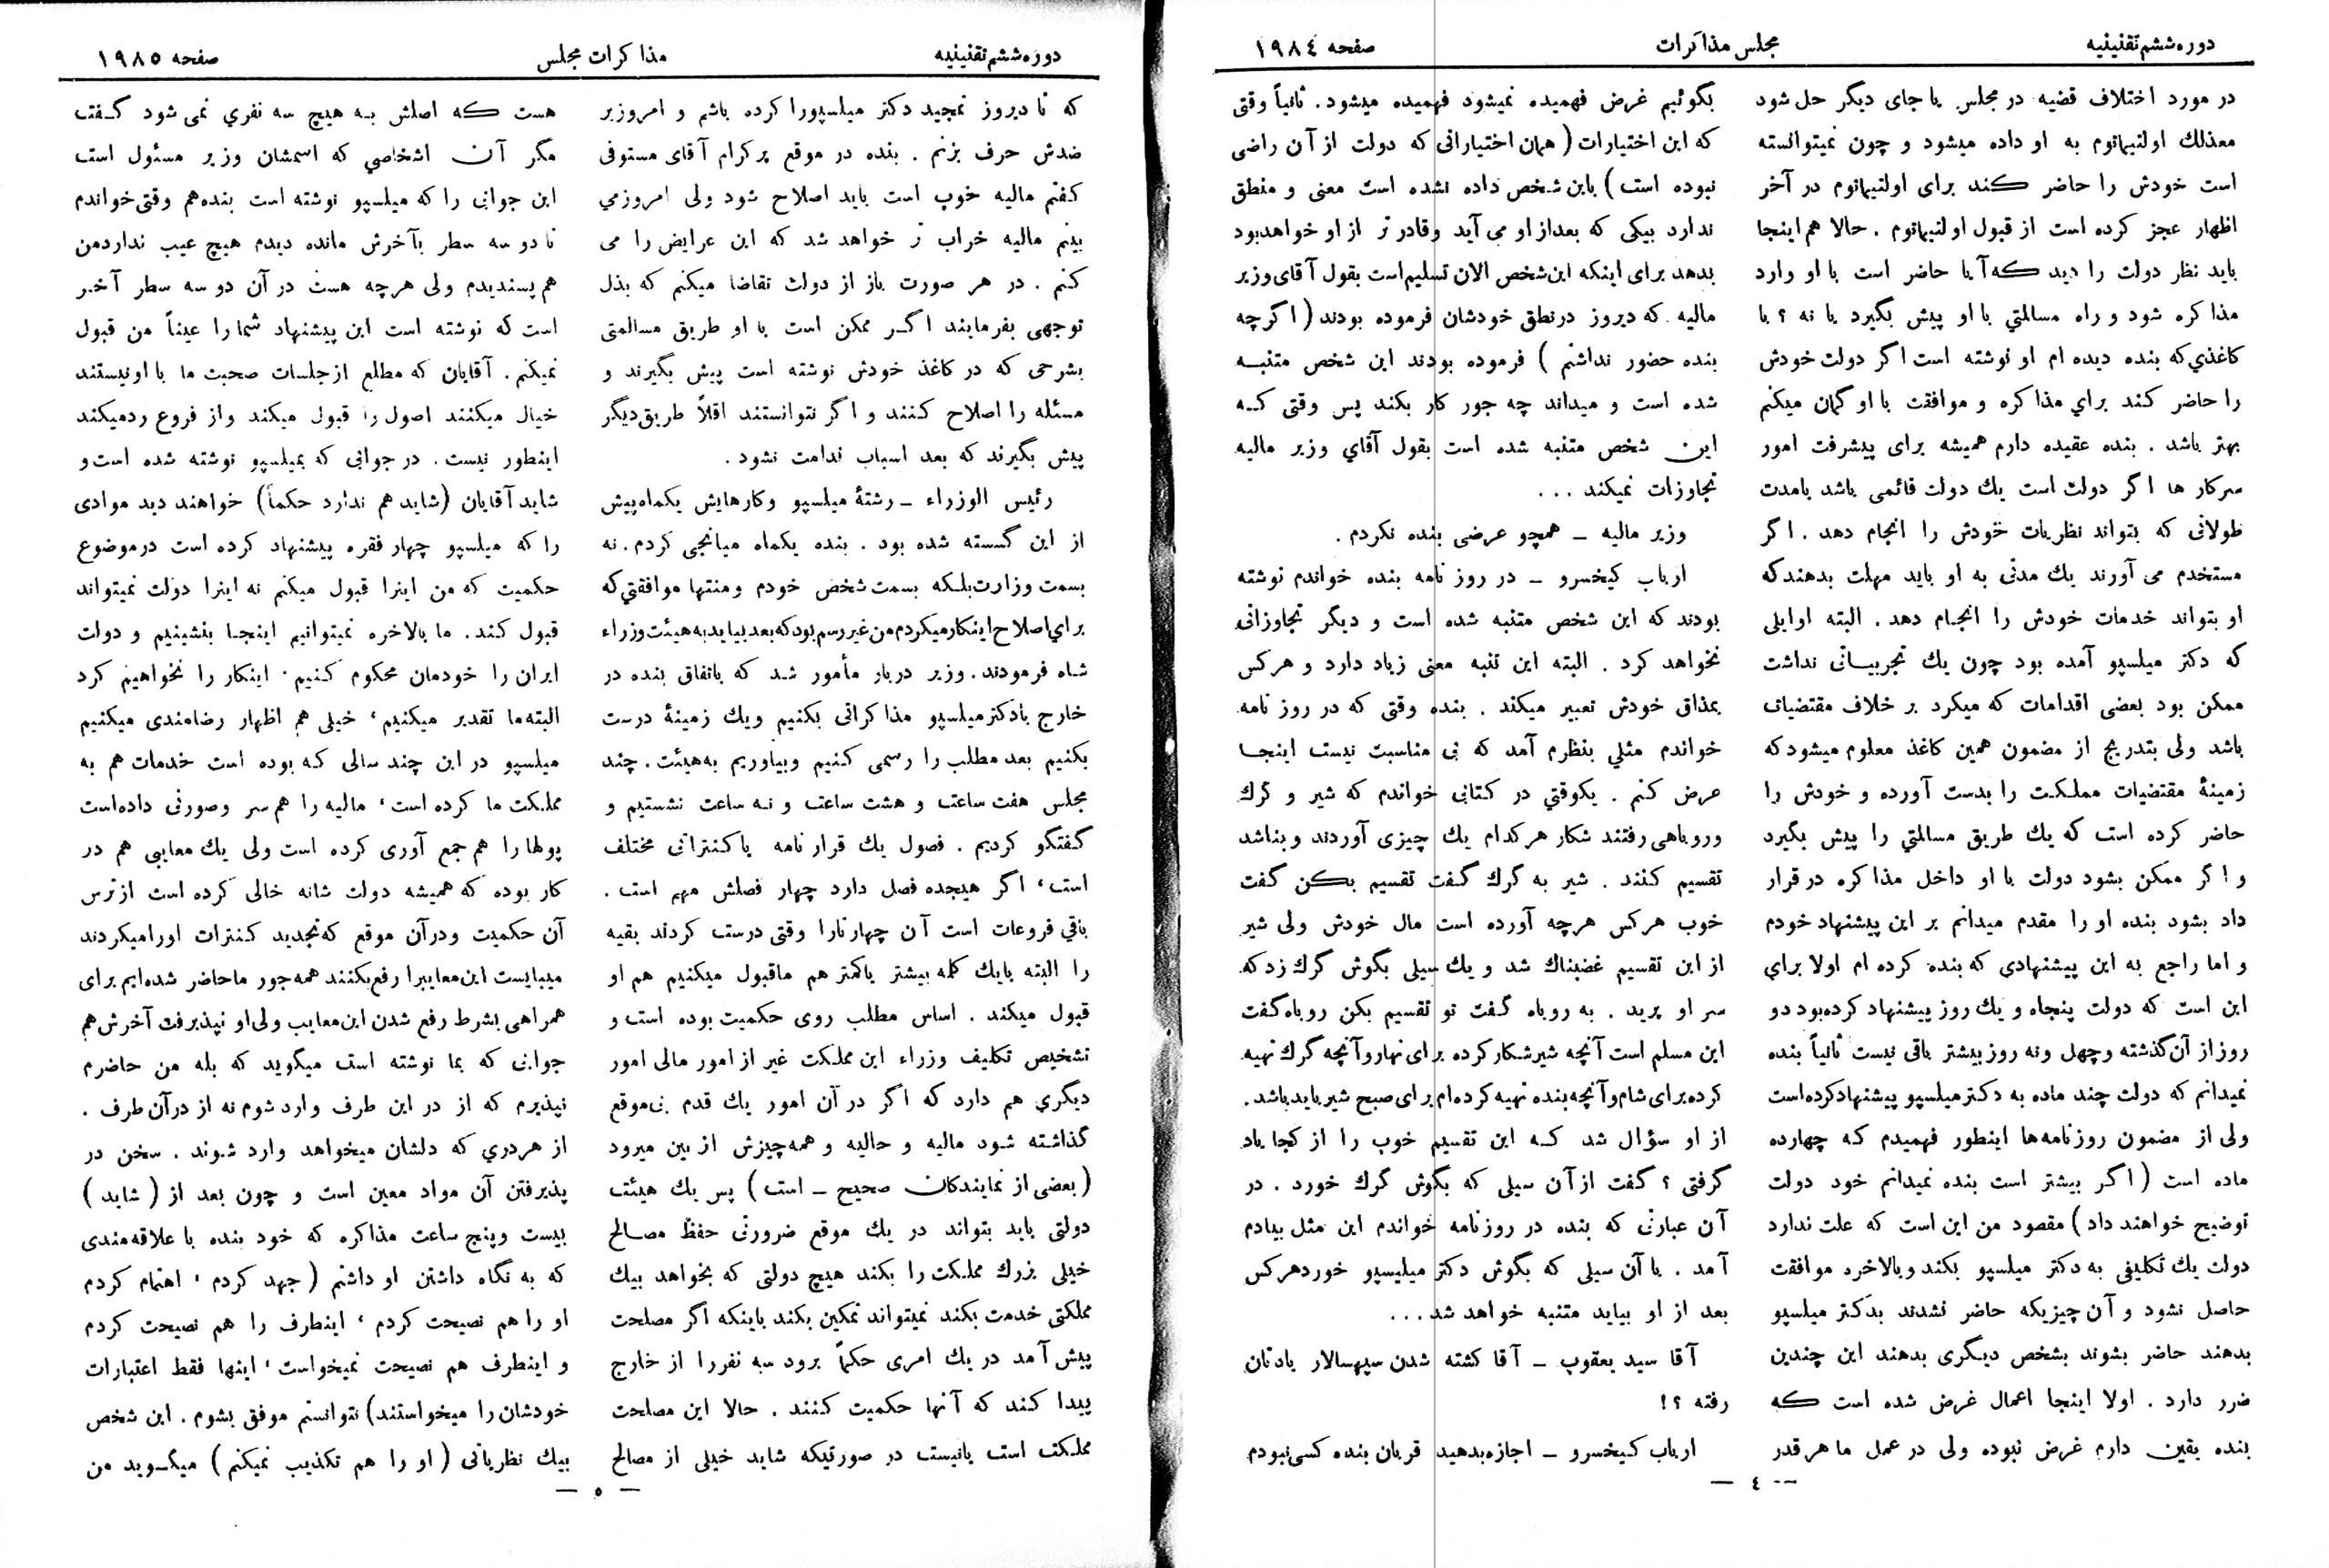 دوره ششم تقنینیه
مجلس مذاکرات
صفحه ۱۹۸۴
در مورد اختلاف قضیه در مجلس یا جای دیگر حل شود
معذلك اولتیماتوم به او داده میشود و چون نمیتوانسته
است خودش را حاضر کند برای اولتیماتوم در آخر
اظهار عجز کرده است از قبول اولتیماتوم . حالا هم اینجا
باید نظر دولت را دید که آیا حاضر است با او وارد
مذاکره شود و راه مسالمتی با او پیش بگیرد یا نه ؟ با
کاغذی که بنده دیده ام او نوشته است اگر دولت خودش
را حاضر کند برای مذاکره و موافقت با او گمان میکنم
بهتر باشد . بنده عقیده دارم همیشه برای پیشرفت امور
سرکار ها اگر دولت است یك دولت قائمی باشد بامدت
طولانی که بتواند نظریات خودش را انجام دهد . اگر
مستخدم می آورند یك مدتی به او باید مهلت بدهند که
او بتواند خدمات خودش را انجام دهد . البته اوایلی
که دکتر میلسپو آمده بود چون یك تجربیاتی نداشت
ممکن بود بعضی اقدامات که میکرد بر خلاف مقتضیات
باشد ولی بتدریج از مضمون همین کاغذ معلوم میشود که
زمینهٔ مقتضیات مملکت را بدست آورده و خودش را
حاضر کرده است که یك طریق مسالمتی را پیش بگیرد
و اگر ممکن بشود دولت با او داخل مذاکره در قرار
داد بشود بنده او را مقدم میدانم بر این پیشنهاد خودم
و اما راجع به این پیشنهادی که بنده کرده ام اولا برای
این است که دولت پنجاه و یك روز پیشنهاد کرده بود دو
روز از آن گذشته و چهل و نه روز بیشتر باقی نیست ثانیاً بنده
نمیدانم که دولت چند ماده به دکتر میلسپو پیشنهاد کرده است
ولی از مضمون روزنامه ها اینطور فهمیدم که چهارده
ماده است ( اگر بیشتر است بنده نمیدانم خود دولت
توضیح خواهند داد ) مقصود من این است که علت ندارد
دولت یك تکلیفی به دکتر میلسپو بکند و بالاخره موافقت
حاصل نشود و آن چیزیکه حاضر نشدند بدکتر میلسپو
بدهند حاضر بشوند بشخص دیگری بدهند این چندین
ضرر دارد . اولا اینجا اعمال غرض شده است که
بنده یقین دارم غرض نبوده ولی در عمل ما هر قدر
بگوئیم غرض فهمیده نمیشود فهمیده میشود . ثانیاً وقتی
که این اختیارات ( همان اختیاراتی که دولت از آن راضی
نبوده است ) باین شخص داده نشده است معنی و منطق
ندارد بیکی که بعد از او می آید و قادر تر از او خواهد بود
بدهد برای اینکه این شخص الان تسلیم است بقول آقای وزیر
مالیه که دیروز در نطق خودشان فرموده بودند ( اگرچه
بنده حضور نداشتم ) فرموده بودند این شخص متنبه
شده است و میداند چه جور کار بکند پس وقتی که
این شخص متنبه شده است بقول آقای وزیر مالیه
تجاوزات نمیکند . . .
وزیر مالیه ـ همچو عرضی بنده نکردم .
ارباب کیخسرو ـ در روز نامه بنده خواندم نوشته
بودند که این شخص متنبه شده است و دیگر تجاوزاتی
نخواهد کرد . البته این تنبه معنی زیاد دارد و هرکس
بمذاق خودش تعبیر میکند . بنده وقتی که در روز نامه
خواندم مثلی بنظرم آمد که بی مناسبت نیست اینجا
عرض کنم . یکوقتی در کتابی خواندم که شیر و گرك
وروباهی رفتند شکار هرکدام یك چیزی آوردند و بناشد
تقسیم کنند . شیر به گرك گفت تقسیم بکن گفت
خوب هرکس هرچه آورده است مال خودش ولی شیر
از این تقسیم غضبناك شد و یك سیلی بگوش گرك زد که
سر او پرید . به روباه گفت تو تقسیم بکن روباه گفت
این مسلم است آنچه شیر شکار کرده برای نهار و آنچه گرك تهیه
کرده برای شام و آنچه بنده تهیه کرده ام برای صبح شیر باید باشد .
از او سؤال شد که این تقسیم خوب را از کجا یاد
گرفتی ؟ گفت از آن سیلی که بگوش گرك خورد . در
آن عبارتی که بنده در روزنامه خواندم این مثل بیادم
آمد . با آن سیلی که بگوش دکتر میلیسپو خورد هرکس
بعد از او بیاید متنبه خواهد شد . . .
آقا سید یعقوب ـ آقا کشته شدن سپهسالار یادتان
رفته ؟!
ارباب کیخسرو ـ اجازه بدهید قربان بنده کسی نبودم
— ٤ —
دوره ششم تقنینیه
مذاکرات مجلس
صفحه ۱۹۸۵
که تا دیروز تمجید دکتر میلسپو را کرده باشم و امروز بر
ضدش حرف بزنم . بنده در موقع پرگرام آقای مستوفی
گفتم مالیه خوب است باید اصلاح شود ولی امروز می
بینم مالیه خراب تر خواهد شد که این عرایض را می
کنم . در هر صورت باز از دولت تقاضا میکنم که بذل
توجهی بفرمایند اگر ممکن است با او طریق مسالمتی
بشرحی که در کاغذ خودش نوشته است پیش بگیرند و
مسئله را اصلاح کنند و اگر نتوانستند اقلاً طریق دیگر
پیش بگیرند که بعد اسباب ندامت نشود .
رئیس الوزراء ـ رشتهٔ میلسپو وکارهایش یکماه پیش
از این گسسته شده بود . بنده یکماه میانجی کردم . نه
بسمت وزارت بلکه بسمت شخص خودم و منتها موافقتی که
برای اصلاح اینکار میکردم من غیر رسم بود که بعد بیاید به هیئت وزراء
شاه فرمودند . وزیر دربار مأمور شد که باتفاق بنده در
خارج با دکتر میلسپو مذاکراتی بکنیم ویك زمینهٔ درست
بکنیم بعد مطلب را رسمی کنیم وبیاوریم به هیئت . چند
مجلس هفت ساعت و هشت ساعت و نه ساعت نشستیم و
گفتگو کردیم . فصول یك قرار نامه یا کنتراتی مختلف
است ، اگر هیجده فصل دارد چهار فصلش مهم است .
باقی فروعات است آن چهارتا را وقتی درست کردند بقیه
را البته بایك کلمه بیشتر یا کمتر هم ماقبول میکنیم هم او
قبول میکند . اساس مطلب روی حکمیت بوده است و
تشخیص تکلیف وزراء این مملکت غیر از امور مالی امور
دیگری هم دارد که اگر در آن امور یك قدم بی موقع
گذاشته شود مالیه و حالیه و همه چیزش از بین میرود
( بعضی از نمایندگان صحیح ـ است ) پس یك هیئت
دولتی باید بتواند در یك موقع ضرورتی حفظ مصالح
خیلی بزرك مملکت را بکند هیچ دولتی که بخواهد بیك
مملکتی خدمت بکند نمیتواند تمکین بکند باینکه اگر مصلحت
پیش آمد در یك امری حکماً برود سه نفر را از خارج
پیدا کند که آنها حکمیت کنند . حالا این مصلحت
مملکت است یانیست در صورتیکه شاید خیلی از مصالح
هست که اصلش به هیچ سه نفری نمی شود گفت
مگر آن اشخاصی که اسمشان وزیر مسئول است
این جوابی را که میلسپو نوشته است بنده هم وقتی خواندم
تا دو سه سطر بآخرش مانده دیدم هیچ عیب ندارد من
هم پسندیدم ولی هرچه هست در آن دو سه سطر آخر
است که نوشته است این پیشنهاد شما را عیناً من قبول
نمیکنم . آقایان که مطلع از جلسات صحبت ما با او نیستند
خیال میکنند اصول را قبول میکند و از فروع رد میکند
اینطور نیست . در جوابی که بمیلسپو نوشته شده است و
شاید آقایان (شاید هم ندارد حکماً) خواهند دید موادی
را که میلسپو چهار فقره پیشنهاد کرده است در موضوع
حکمیت که من اینرا قبول میکنم نه اینرا دولت نمیتواند
قبول کند . ما بالاخره نمیتوانیم اینجا بنشینیم و دولت
ایران را خودمان محکوم کنیم . اینکار را نخواهیم کرد
البته ما تقدیر میکنیم ، خیلی هم اظهار رضامندی میکنیم
میلسپو در این چند سالی که بوده است خدمات هم به
مملکت ما کرده است ، مالیه را هم سر وصورتی داده است
پولها را هم جمع آوری کرده است ولی یك معایبی هم در
کار بوده که همیشه دولت شانه خالی کرده است از ترس
آن حکمیت و در آن موقع که تجدید کنترات او را میکردند
میبایست این معایب را رفع بکنند همه جور ما حاضر شده ایم برای
همراهی بشرط رفع شدن این معایب ولی او نپذیرفت آخرش هم
جوابی که بما نوشته است میگوید که بله من حاضرم
نپذیرم که از در این طرف وارد شوم نه از در آن طرف .
از هر دری که دلشان میخواهد وارد شوند . سخن در
پذیرفتن آن مواد معین است و چون بعد از ( شاید )
بیست وپنج ساعت مذاکره که خود بنده با علاقه مندی
که به نگاه داشتن او داشتم ( جهد کردم ، اهتمام کردم
او را هم نصیحت کردم ، اینطرف را هم نصیحت کردم
و اینطرف هم نصیحت نمیخواست ، اینها فقط اعتبارات
خودشان را میخواستند) نتوانستم موفق بشوم . این شخص
بیك نظریاتی ( او را هم تکذیب نمیکنم ) میگوید من
— ٥ —